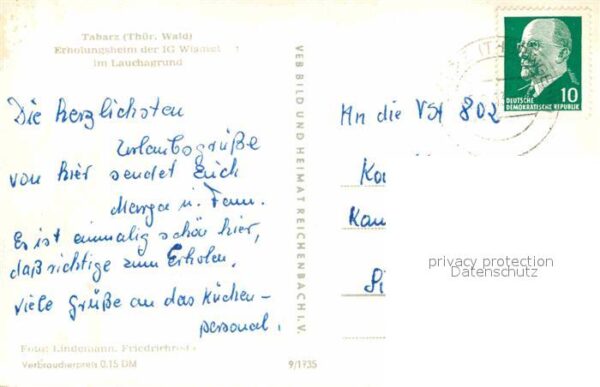 Tabarz (Thür. Wald)
Erholungsheim der IG Wismut
im Lauchagrund
Die herzlichsten
Urlaubsgrüße
von hier sendet Euch
Marga u. Fam.
Es ist einmalig schön hier,
das richtige zum Erholen.
Viele Grüße an das Küchen-
personal.
Foto: Lindemann, Friedrichroda
Verbraucherpreis 0,15 DM
9/1735
VEB BILD UND HEIMAT REICHENBACH I. V.
DEUTSCHE
DEMOKRATISCHE REPUBLIK
10
An die VSt 802
Ka
Kan
privacy protection
Datenschutz